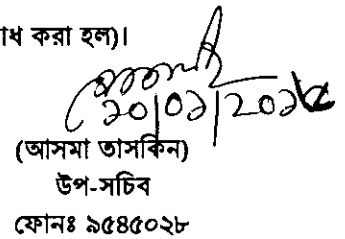 ধ করা হল)।
২০|০১|২০১৫
(আসমা তাসকিন)
উপ-সচিব
ফোনঃ ৯৫৪৫০২৮